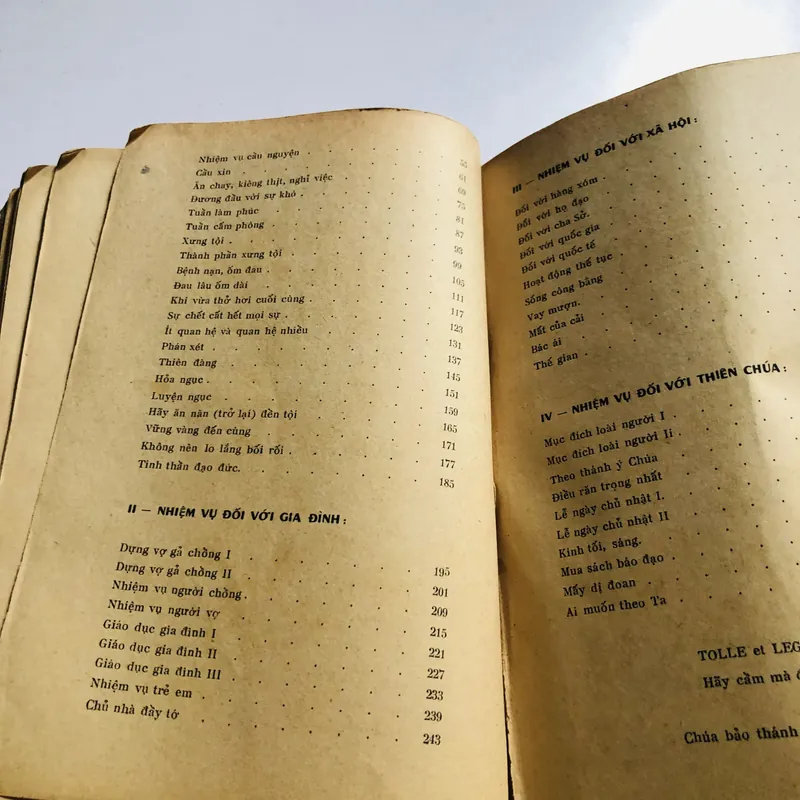 Nhiệm vụ cầu nguyện . . . . 55
Cầu xin . . . . 61
Ăn chay, kiêng thịt, nghỉ việc . . . . 69
Đương đầu với sự khó . . . . 75
Tuần làm phúc . . . . 81
Tuần cấm phòng . . . . 87
Xưng tội . . . . 93
Thành phần xưng tội . . . . 99
Bệnh nạn, ốm đau . . . . 105
Đau lâu ốm dài . . . . 111
Khi vừa thở hơi cuối cùng . . . . 117
Sự chết cất hết mọi sự . . . . 123
Ít quan hệ và quan hệ nhiều . . . . 131
Phán xét . . . . 137
Thiên đàng . . . . 145
Hỏa ngục . . . . 151
Luyện ngục . . . . 159
Hãy ăn năn (trở lại) đền tội . . . . 165
Vững vàng đến cùng . . . . 171
Không nên lo lắng bối rối . . . . 177
Tinh thần đạo đức. . . . . 185
II — NHIỆM VỤ ĐỐI VỚI GIA ĐÌNH :
Dựng vợ gả chồng I . . . . 195
Dựng vợ gả chồng II . . . . 201
Nhiệm vụ người chồng. . . . . 209
Nhiệm vụ người vợ . . . . 215
Giáo dục gia đình I . . . . 221
Giáo dục gia đình II . . . . 227
Giáo dục gia đình III . . . . 233
Nhiệm vụ trẻ em . . . . 239
Chủ nhà đầy tớ . . . . 243
III — NHIỆM VỤ ĐỐI VỚI XÃ HỘI :
Đối với hàng xóm . . . .
Đối với họ đạo . . . .
Đối với cha Sở. . . . .
Đối với quốc gia . . . .
Đối với quốc tế . . . .
Hoạt động thế tục . . . .
Sống công bằng . . . .
Vay mượn. . . . .
Mất của cải . . . .
Bác ái . . . .
Thế gian . . . .
IV — NHIỆM VỤ ĐỐI VỚI THIÊN CHÚA :
Mục đích loài người I . . . .
Mục đích loài người Ii . . . .
Theo thánh ý Chúa . . . .
Điều răn trọng nhất . . . .
Lễ ngày chủ nhật I. . . . .
Lễ ngày chủ nhật II . . . .
Kinh tối, sáng. . . . .
Mua sách báo đạo . . . .
Mấy dị đoan . . . .
Ai muốn theo Ta . . . .
TOLLE et LEG
Hãy cầm mà đ
Chúa bảo thánh